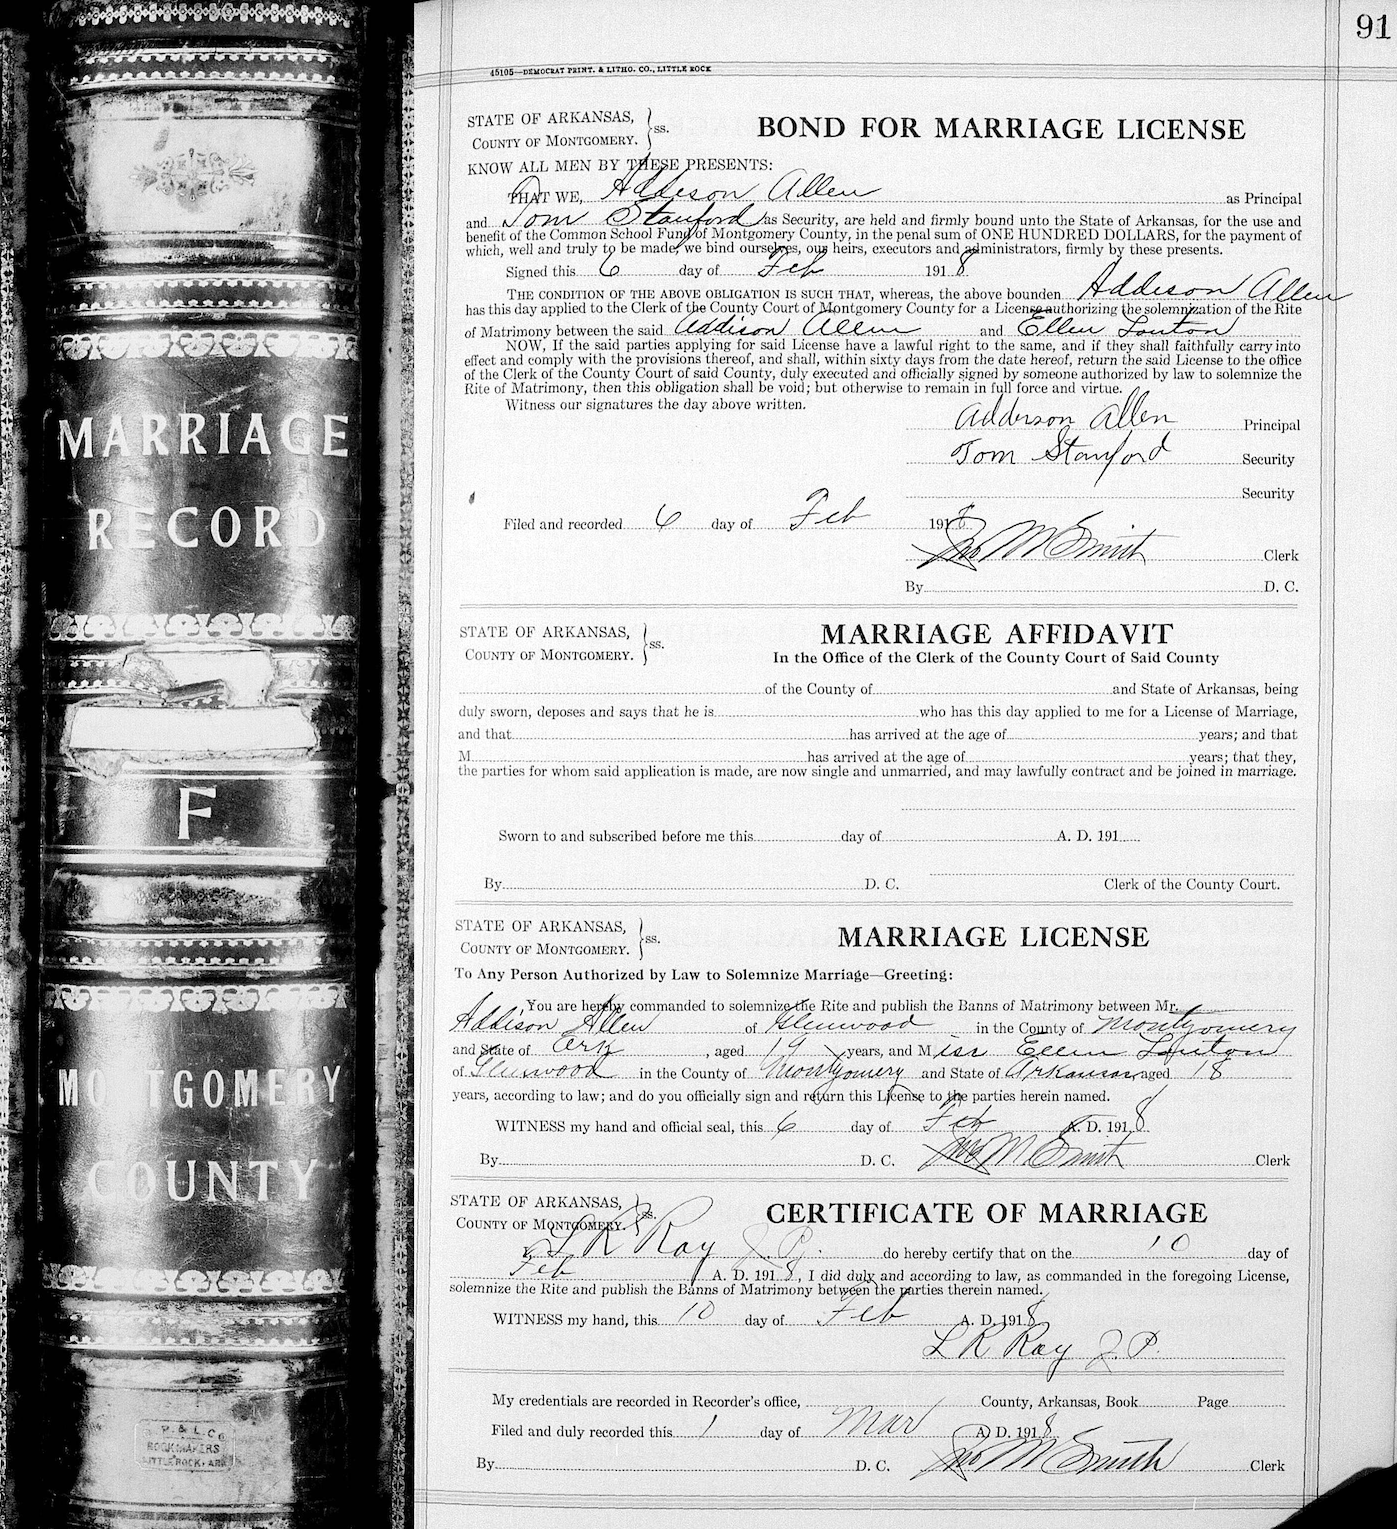 MARRIAGE
RECORD
F
MO TGOMERY
COUNTY
P. & L. Co
BOOKMAKERS
LITTLE ROCK, ARK
91
45105—DEMOCRAT PRINT. & LITHO. CO., LITTLE ROCK
STATE OF ARKANSAS,
COUNTY OF MONTGOMERY. } ss.
BOND FOR MARRIAGE LICENSE
KNOW ALL MEN BY THESE PRESENTS:
THAT WE, Addison Allen as Principal
and Tom Stanford as Security, are held and firmly bound unto the State of Arkansas, for the use and
benefit of the Common School Fund of Montgomery County, in the penal sum of ONE HUNDRED DOLLARS, for the payment of
which, well and truly to be made, we bind ourselves, our heirs, executors and administrators, firmly by these presents.
Signed this 6 day of Feb 1918
THE CONDITION OF THE ABOVE OBLIGATION IS SUCH THAT, whereas, the above bounden Addison Allen
has this day applied to the Clerk of the County Court of Montgomery County for a License authorizing the solemnization of the Rite
of Matrimony between the said Addison Allen and Ellen Louton
NOW, If the said parties applying for said License have a lawful right to the same, and if they shall faithfully carry into
effect and comply with the provisions thereof, and shall, within sixty days from the date hereof, return the said License to the office
of the Clerk of the County Court of said County, duly executed and officially signed by someone authorized by law to solemnize the
Rite of Matrimony, then this obligation shall be void; but otherwise to remain in full force and virtue.
Witness our signatures the day above written.
Adderson Allen Principal
Tom Stanford Security
Security
Filed and recorded 6 day of Feb 1918
Jno M Smith Clerk
By D. C.
STATE OF ARKANSAS,
COUNTY OF MONTGOMERY. } ss.
MARRIAGE AFFIDAVIT
In the Office of the Clerk of the County Court of Said County
of the County of and State of Arkansas, being
duly sworn, deposes and says that he is who has this day applied to me for a License of Marriage,
and that has arrived at the age of years; and that
M has arrived at the age of years; that they,
the parties for whom said application is made, are now single and unmarried, and may lawfully contract and be joined in marriage.
Sworn to and subscribed before me this day of A. D. 191
By D. C. Clerk of the County Court.
STATE OF ARKANSAS,
COUNTY OF MONTGOMERY. } ss.
MARRIAGE LICENSE
To Any Person Authorized by Law to Solemnize Marriage—Greeting:
You are hereby commanded to solemnize the Rite and publish the Banns of Matrimony between Mr.
Addison Allen of Glenwood in the County of Montgomery
and State of Ark, aged 19 years, and Miss Ellen Louton
of Glenwood in the County of Montgomery and State of Arkansas, aged 18
years, according to law; and do you officially sign and return this License to the parties herein named.
WITNESS my hand and official seal, this 6 day of Feb A. D. 1918
By D. C. Jno M Smith Clerk
STATE OF ARKANSAS,
COUNTY OF MONTGOMERY. } ss.
CERTIFICATE OF MARRIAGE
L R Ray J. P. do hereby certify that on the 10 day of
Feb A. D. 1918, I did duly and according to law, as commanded in the foregoing License,
solemnize the Rite and publish the Banns of Matrimony between the parties therein named.
WITNESS my hand, this 10 day of Feb A. D. 1918
L R Ray J. P.
My credentials are recorded in Recorder's office, County, Arkansas, Book Page
Filed and duly recorded this 1 day of Mar A. D. 1918
By D. C. Jno M Smith Clerk